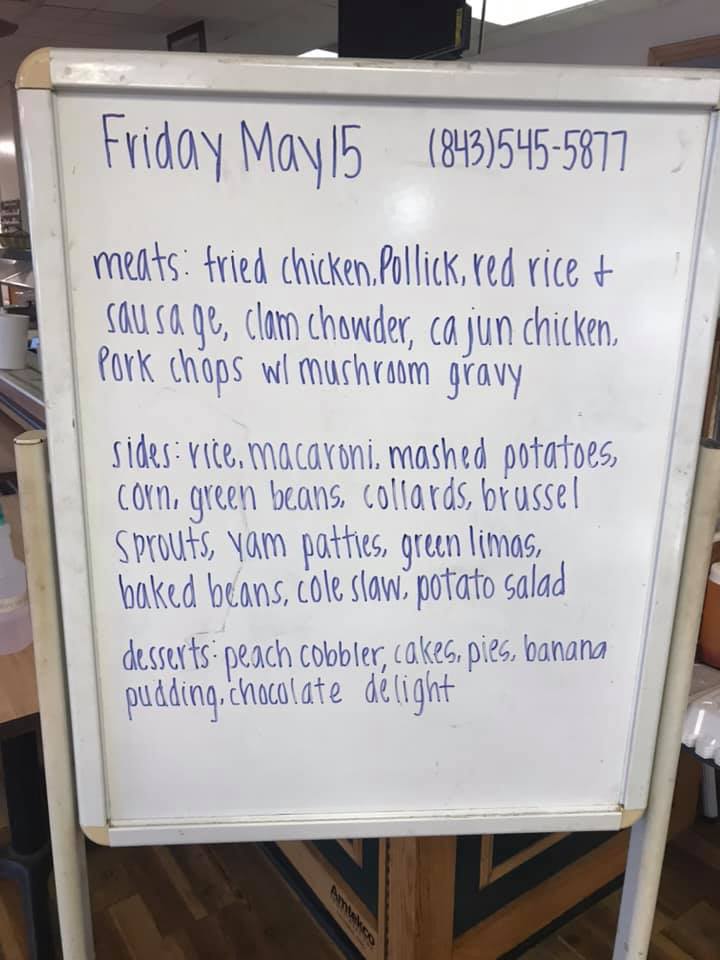 Friday May 15 (843)545-5877
meats: fried chicken, Pollick, red rice +
sausage, clam chowder, cajun chicken,
Pork chops w/ mushroom gravy
sides: rice, macaroni, mashed potatoes,
corn, green beans, collards, brussel
sprouts, yam patties, green limas,
baked beans, cole slaw, potato salad
desserts: peach cobbler, cakes, pies, banana
pudding, chocolate delight
Amtekco